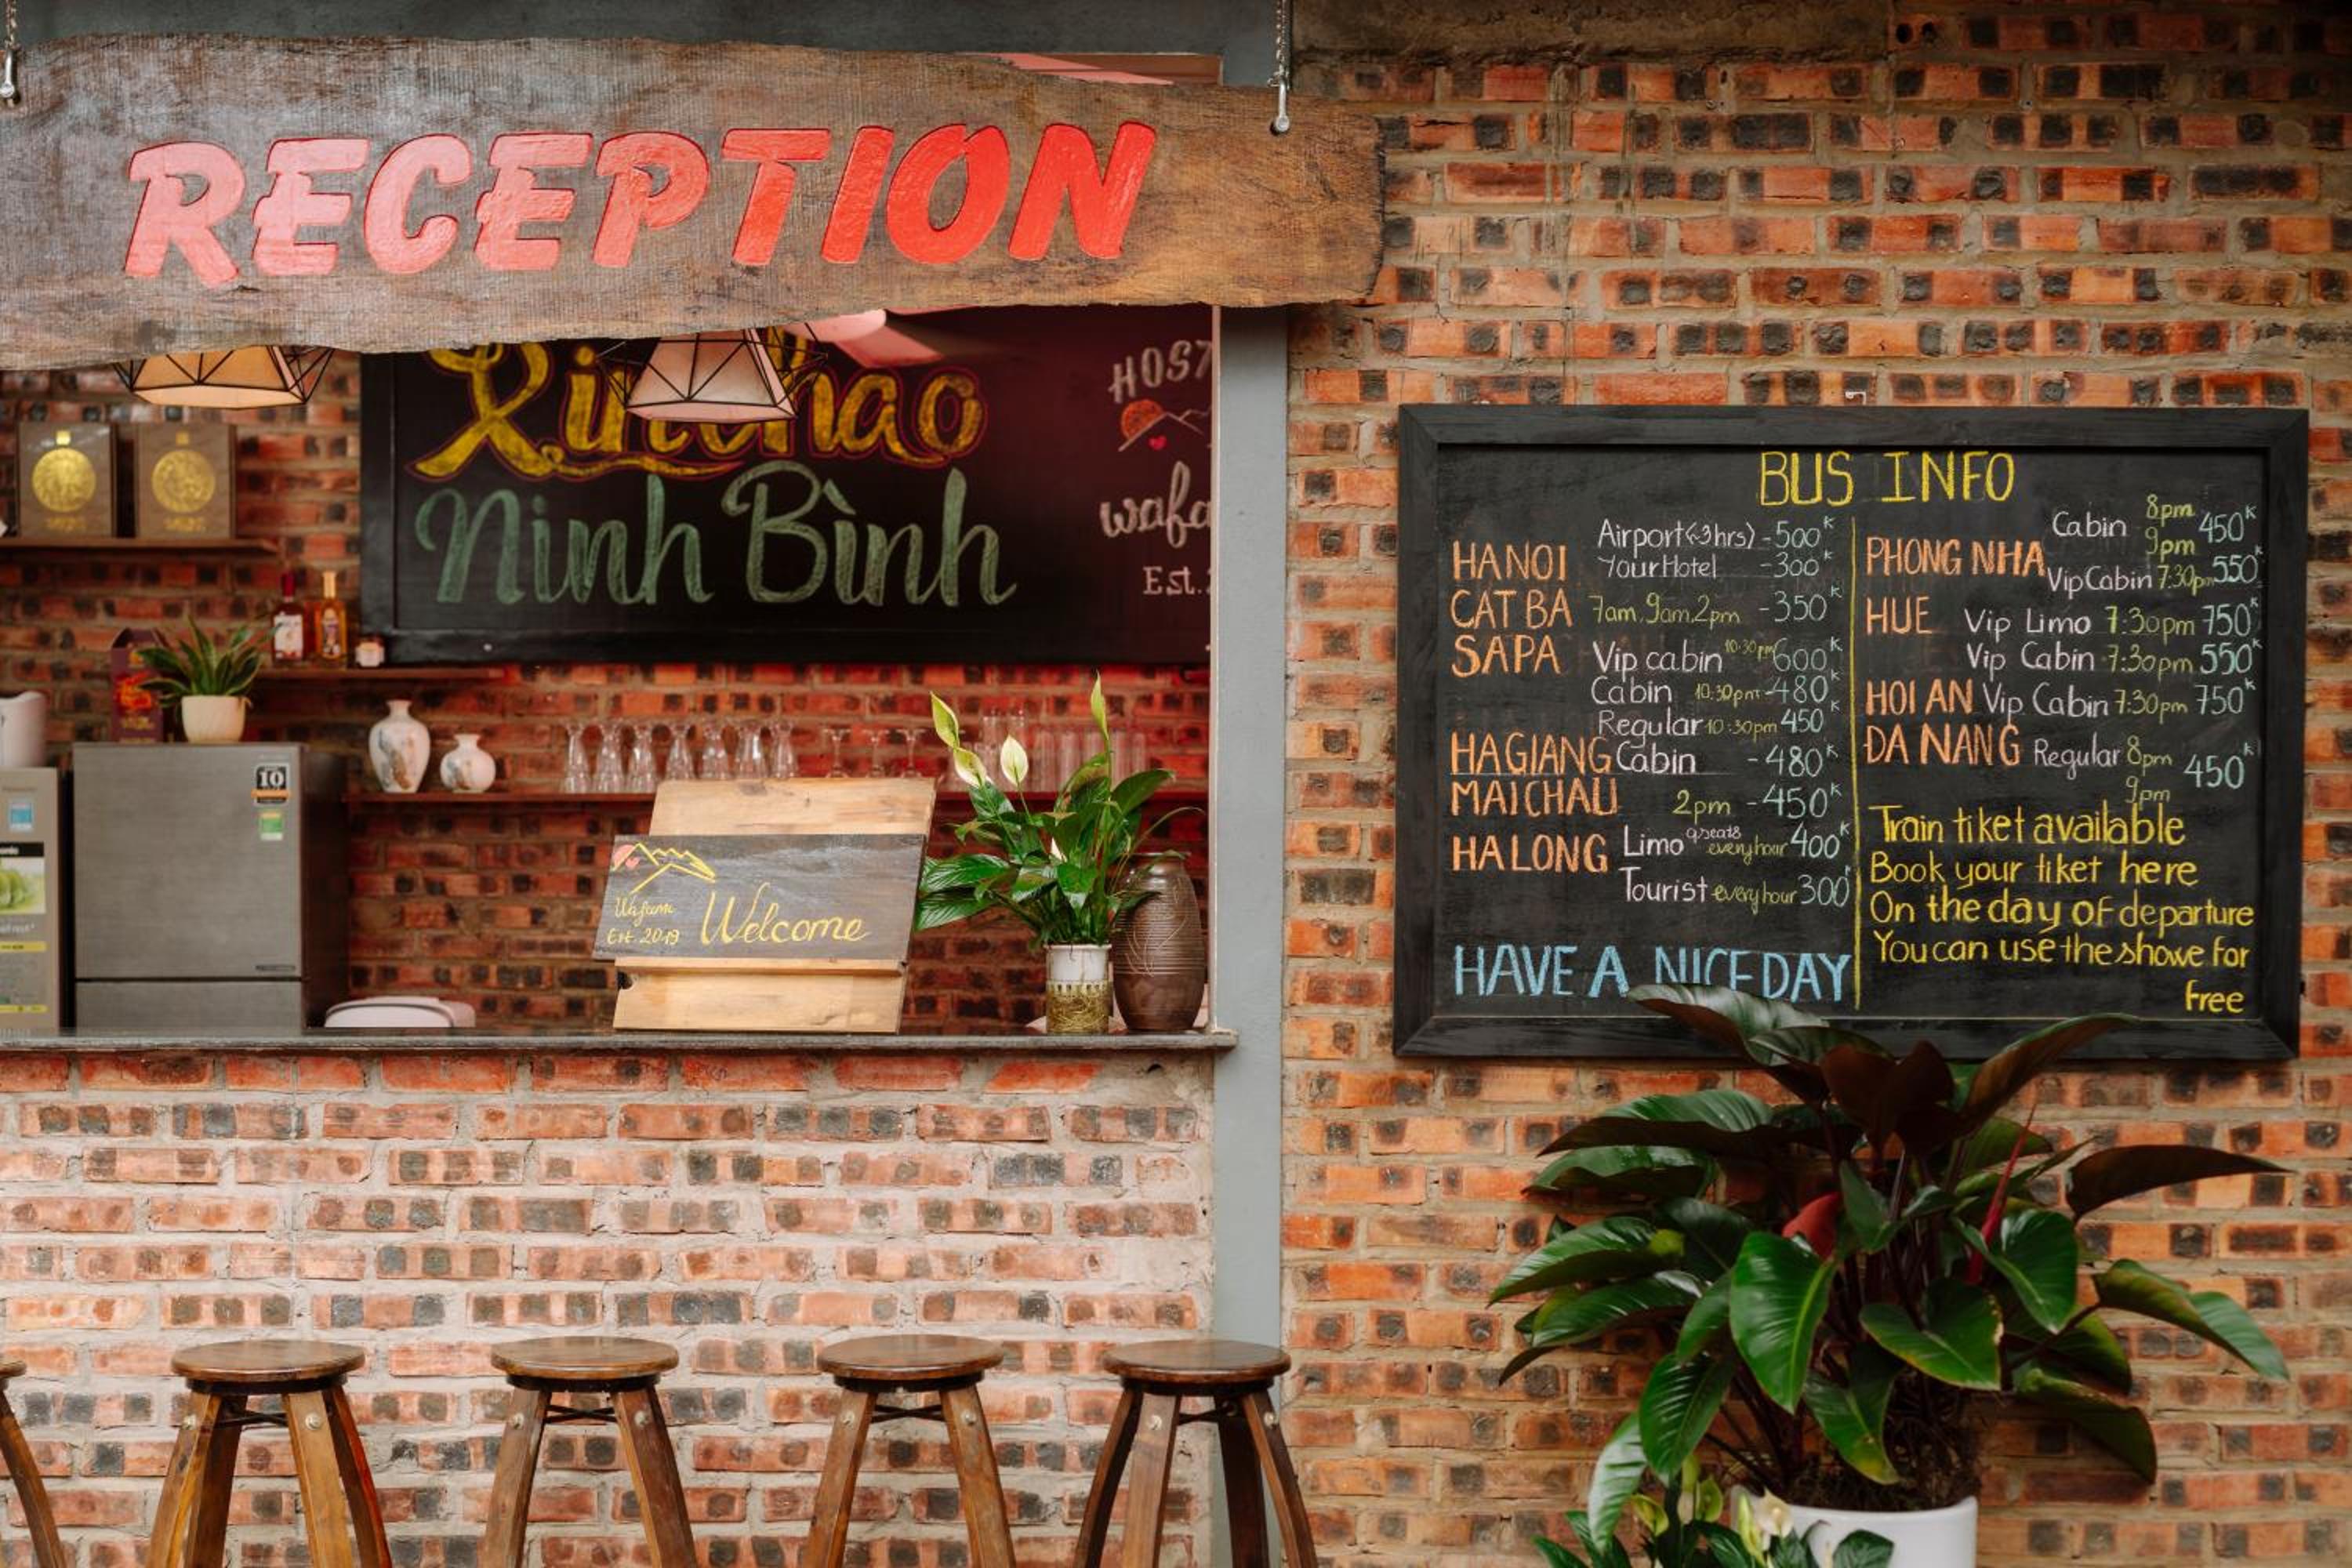 RECEPTION
Xin chao
Ninh Bình
HOST
wafa
Est.
10
Wafami
Est. 2019
Welcome
BUS INFO
HANOI Airport(~3hrs) -500k
Your Hotel -300k
CAT BA 7am, 9am, 2pm -350k
SAPA Vip cabin 10:30pm 600k
Cabin 10:30pm -480k
Regular 10:30pm 450k
HAGIANG Cabin -480k
MAICHAU 2pm -450k
HALONG Limo 9seats every hour 400k
Tourist every hour 300k
HAVE A NICE DAY
PHONG NHA Cabin 8pm 9pm 450k
Vip Cabin 7:30pm 550k
HUE Vip Limo 7:30pm 750k
Vip Cabin 7:30pm 550k
HOI AN Vip Cabin 7:30pm 750k
DA NANG Regular 8pm 9pm 450k
Train tiket available
Book your tiket here
On the day of departure
You can use the showe for
free